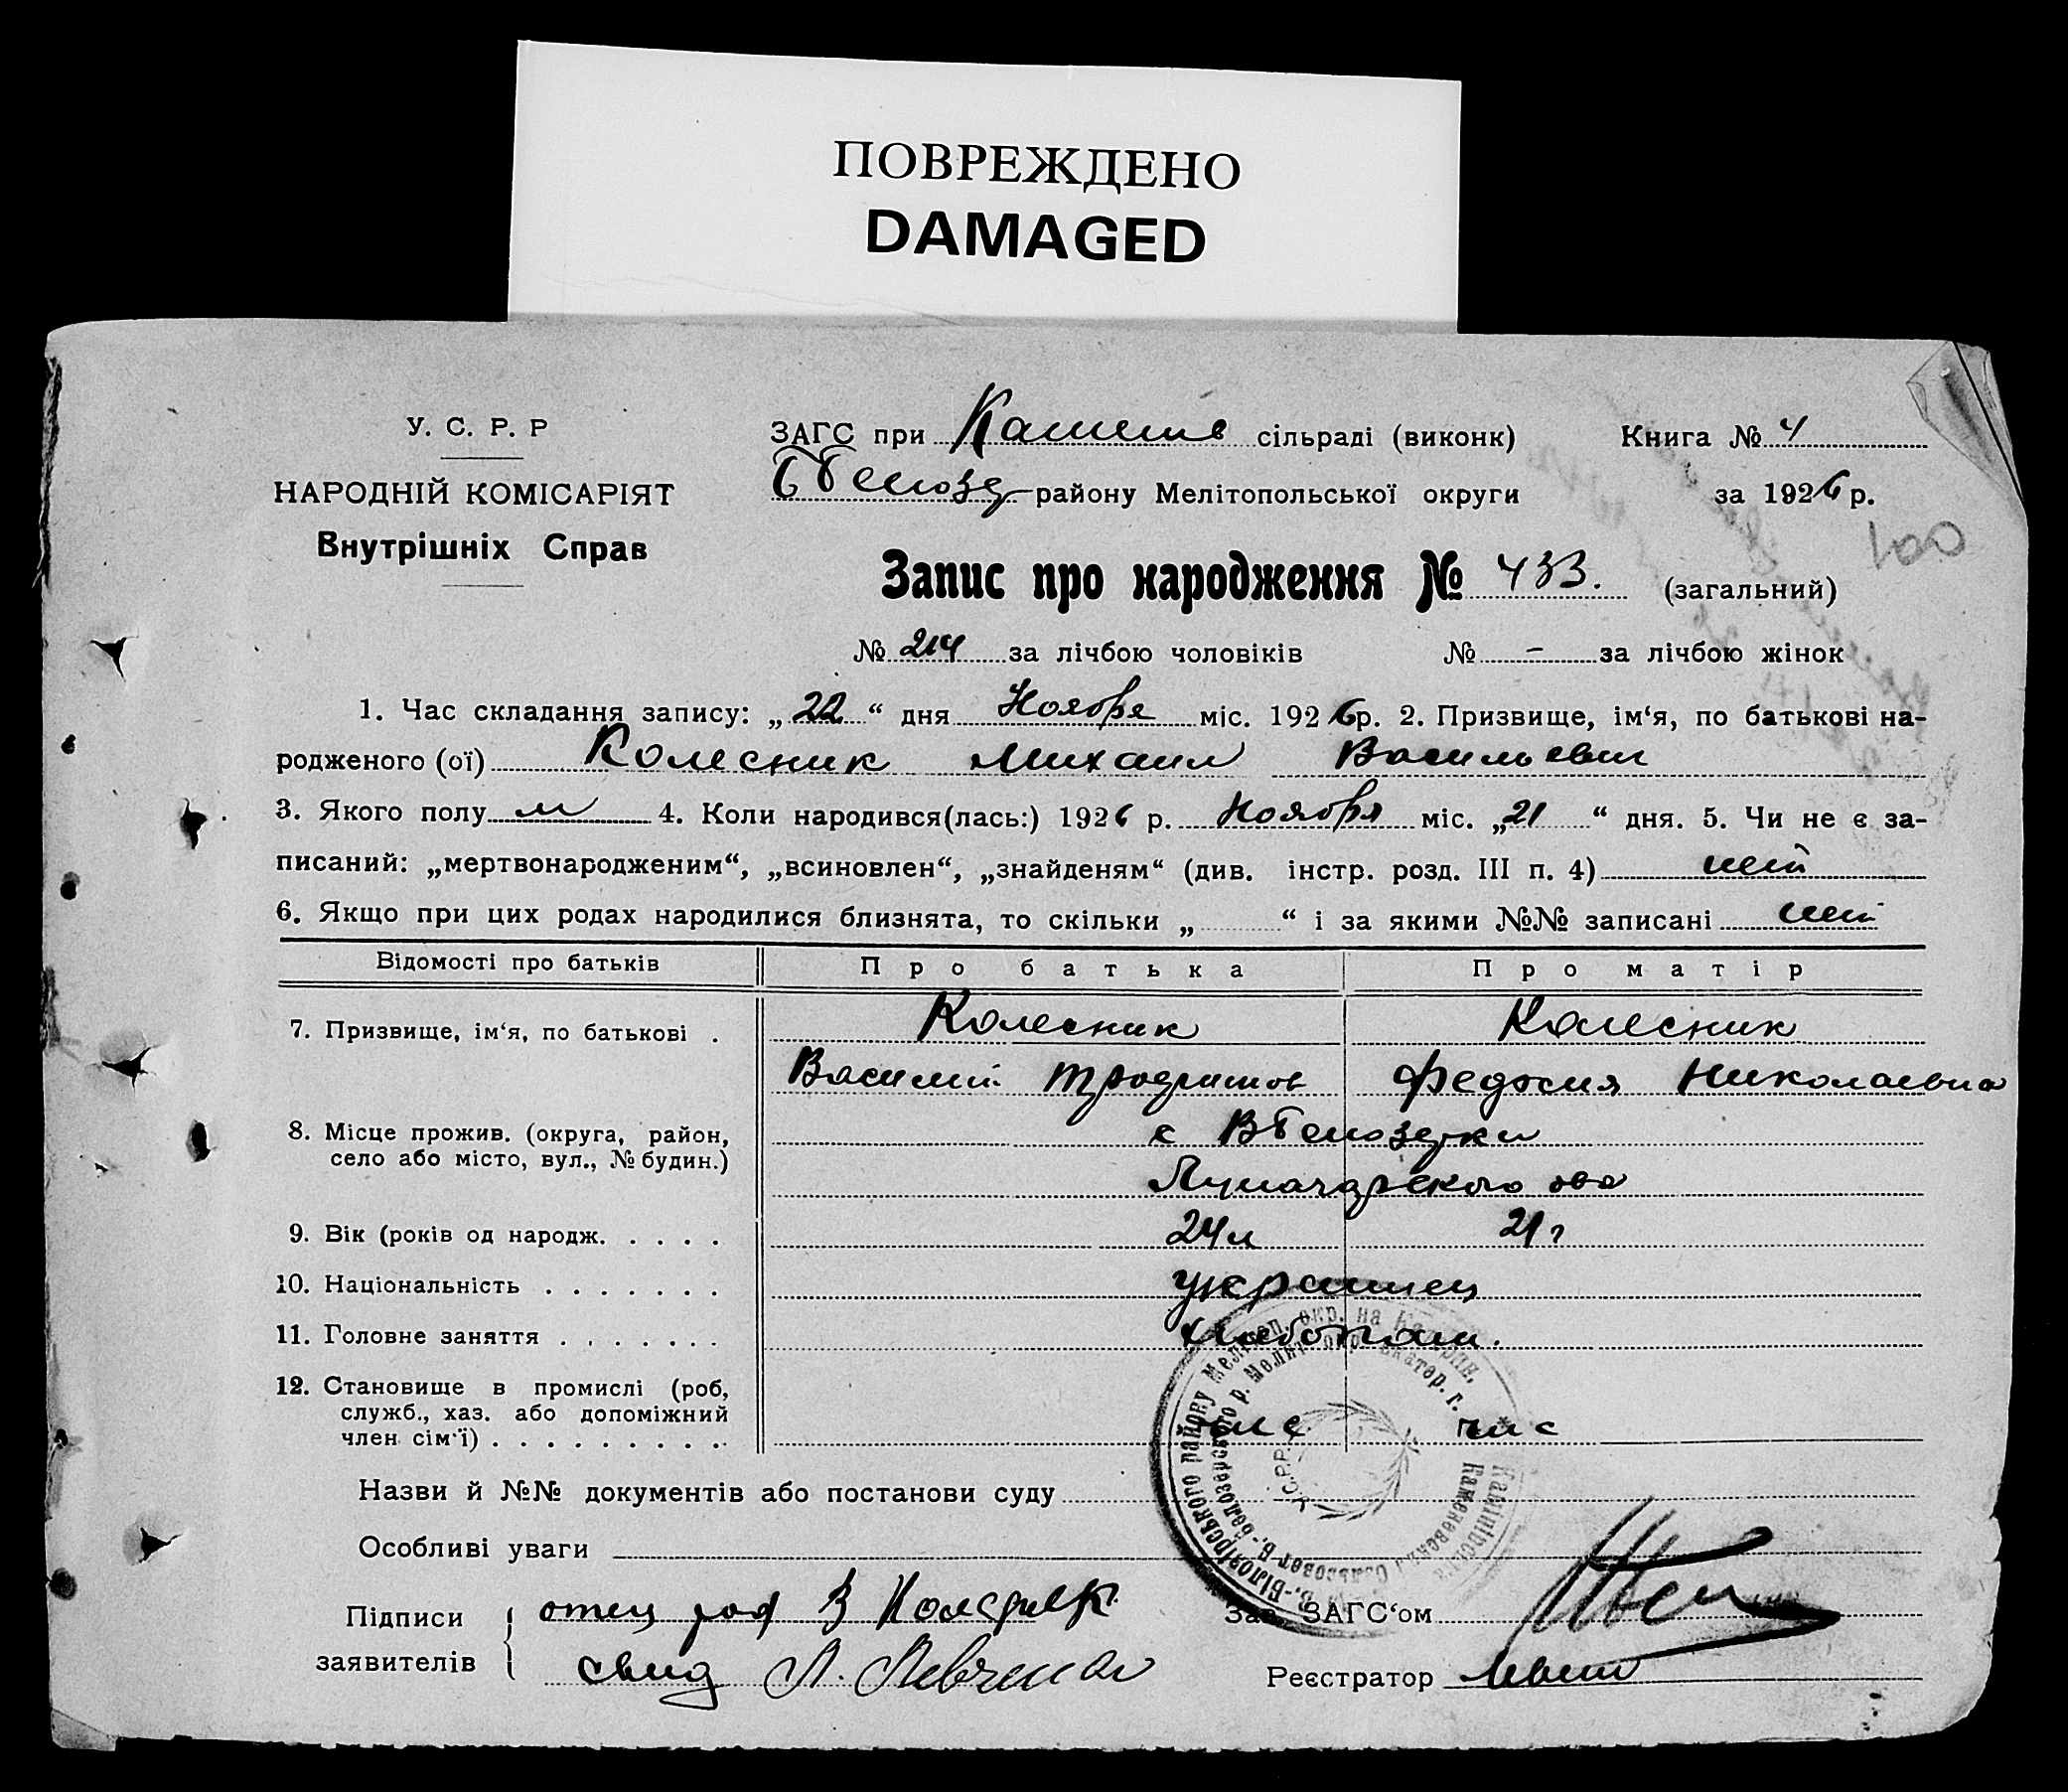 ПОВРЕЖДЕНО
DAMAGED
У. С. Р. Р
НАРОДНІЙ КОМІСАРІЯТ
Внутрішніх Справ
ЗАГС при сільраді (виконк)
району Мелітопольської округи
Книга № 4
за 1926 р.
100
Запис про народження № 433. (загальний)
№ 214 за лічбою чоловіків № - за лічбою жінок
1. Час складання запису: „22“ дня Ноября міс. 1926 р. 2. Призвище, ім‘я, по батькові на-
родженого (ої) Колесник Михаил Васильевич
3. Якого полу м 4. Коли народився(лась:) 1926 р. Ноября міс. „21“ дня. 5. Чи не є за-
писаний: „мертвонародженим“, „всиновлен“, „знайденям“ (див. інстр. розд. III п. 4) нет
6. Якщо при цих родах народилися близнята, то скільки „ “ і за якими №№ записані нет
Відомості про батьків Про батька Про матір
7. Призвище, ім‘я, по батькові . Колесник Колесник
Василий Федосия Николаевна
8. Місце прожив. (округа, район,
село або місто, вул., № будин.)
с
Луначарского
9. Вік (років од народж. . . . . 24 л 21 г
10. Національність . . . . . . . украинец
11. Головне заняття . . . . . . .
12. Становище в промислі (роб,
служб., хаз. або допоміжний
член сім‘ї) . . . . . . . . .
Назви й №№ документів або постанови суду
Особливі уваги
Підписи
заявителів
отец В
свид Л. Левченко
Зав. ЗАГС‘ом
Реєстратор